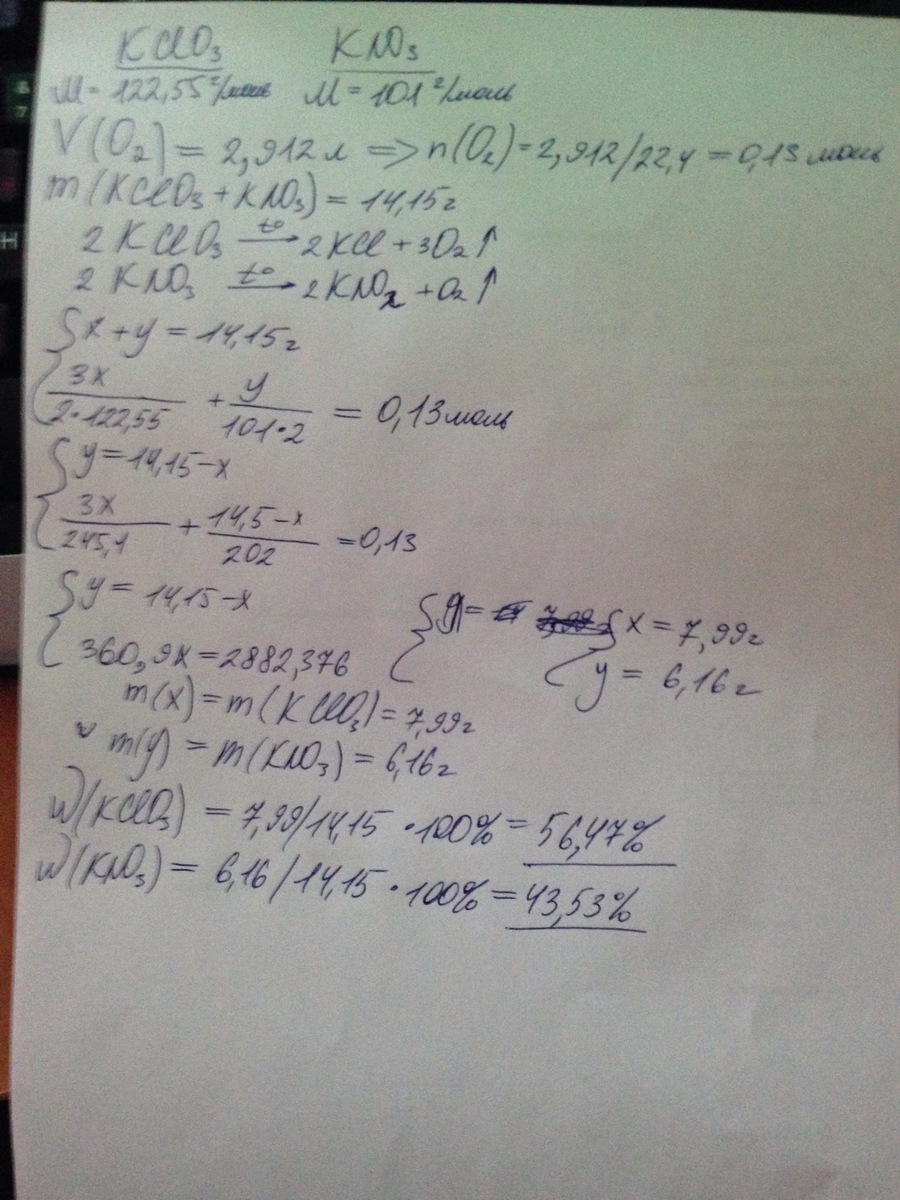 KClO₃ KNO₃
M = 122,55 г/моль M = 101 г/моль
V(O₂) = 2,912 л => n(O₂) = 2,912/22,4 = 0,13 моль
m(KClO₃ + KNO₃) = 14,15 г
2 KClO₃ t° → 2KCl + 3O₂↑
2 KNO₃ t° → 2KNO₂ + O₂↑
{ x + y = 14,15 г
3x / 2·122,55 + y / 101·2 = 0,13 моль
{ y = 14,15 - x
3x / 245,1 + 14,5 - x / 202 = 0,13
{ y = 14,15 - x
360,9x = 2882,376
{ y = { x = 7,99 г
y = 6,16 г
m(x) = m(KClO₃) = 7,99 г
m(y) = m(KNO₃) = 6,16 г
W(KClO₃) = 7,99/14,15 · 100% = 56,47%
W(KNO₃) = 6,16/14,15 · 100% = 43,53%